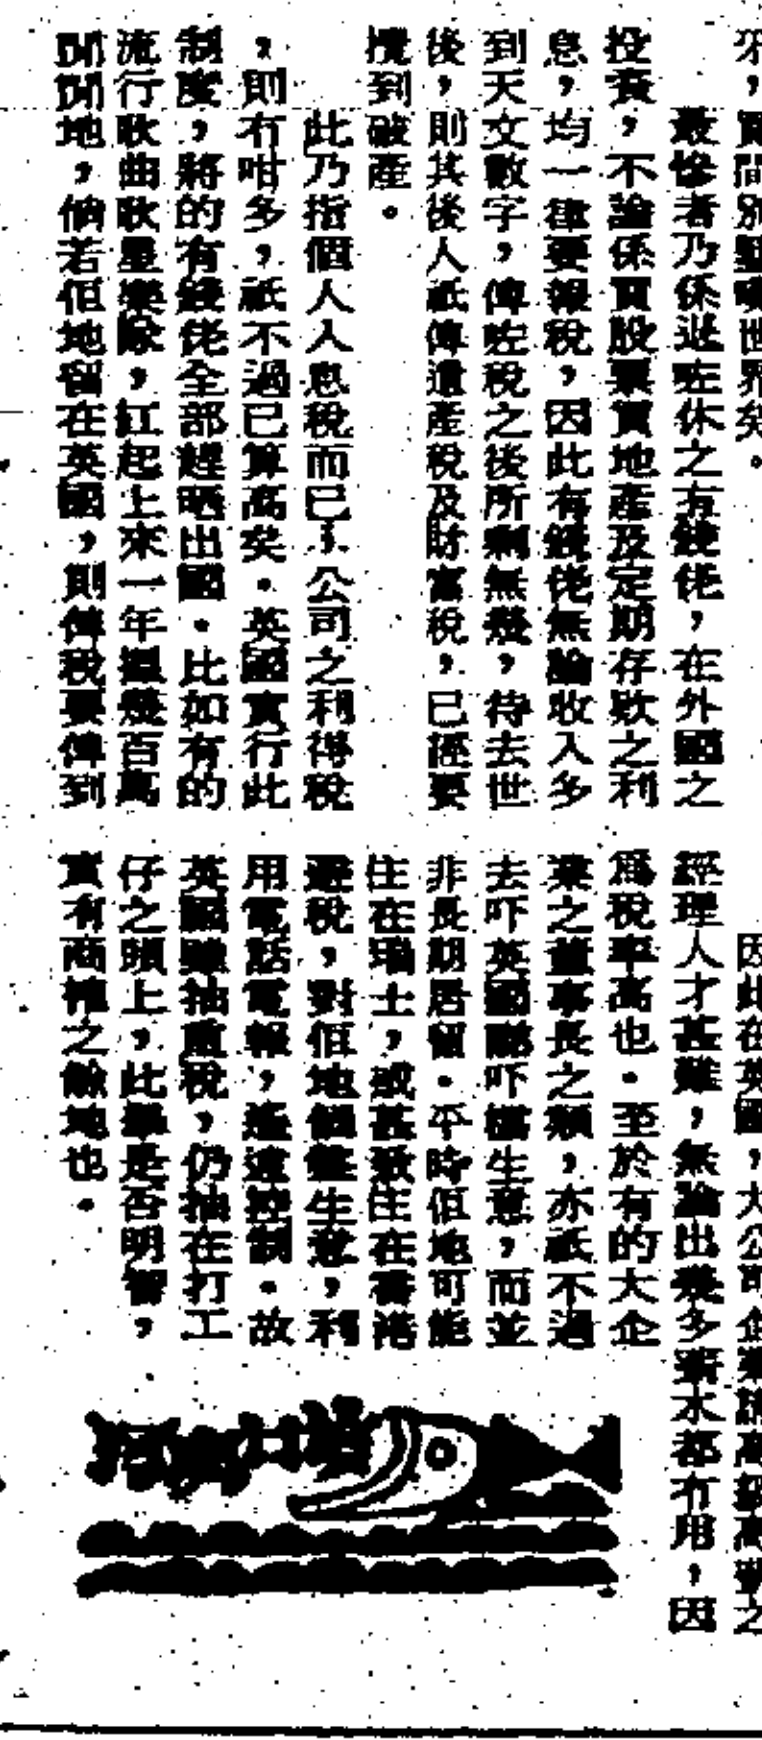 牙，買間別墅嘆世界矣。
最慘者乃係退咗休之有錢佬，在外國之
投資，不論係買股票買地產及定期存欵之利
息，均一律要報稅，因此有錢佬無論收入多
到天文數字，俾咗稅之後所剩無幾，待去世
後，則其後人祇俾遺產稅及財富稅，已經要
攪到破產。
此乃指個人入息稅而已，公司之利得稅
，則冇咁多，祇不過已算高矣。英國實行此
制度，將的有錢佬全部趕晒出國。比如有的
流行歌曲歌星樂隊，紅起上來一年搵幾百萬
閒閒地，倘若佢地留在英國，則俾稅要俾到
因此在英國，大公司企業請高級高薪之
經理人才甚難，無論出幾多薪水都冇用，因
爲稅率高也。至於有的大企
業之董事長之類，亦祇不過
去吓英國睇吓檔生意，而並
非長期居留。平時佢地可能
住在瑞士，或甚致住在香港
避稅，對佢地個盤生意，利
用電話電報，遙遠控制。故
英國雖抽重稅，仍抽在打工
仔之頭上，此舉是否明智，
實有商榷之餘地也。